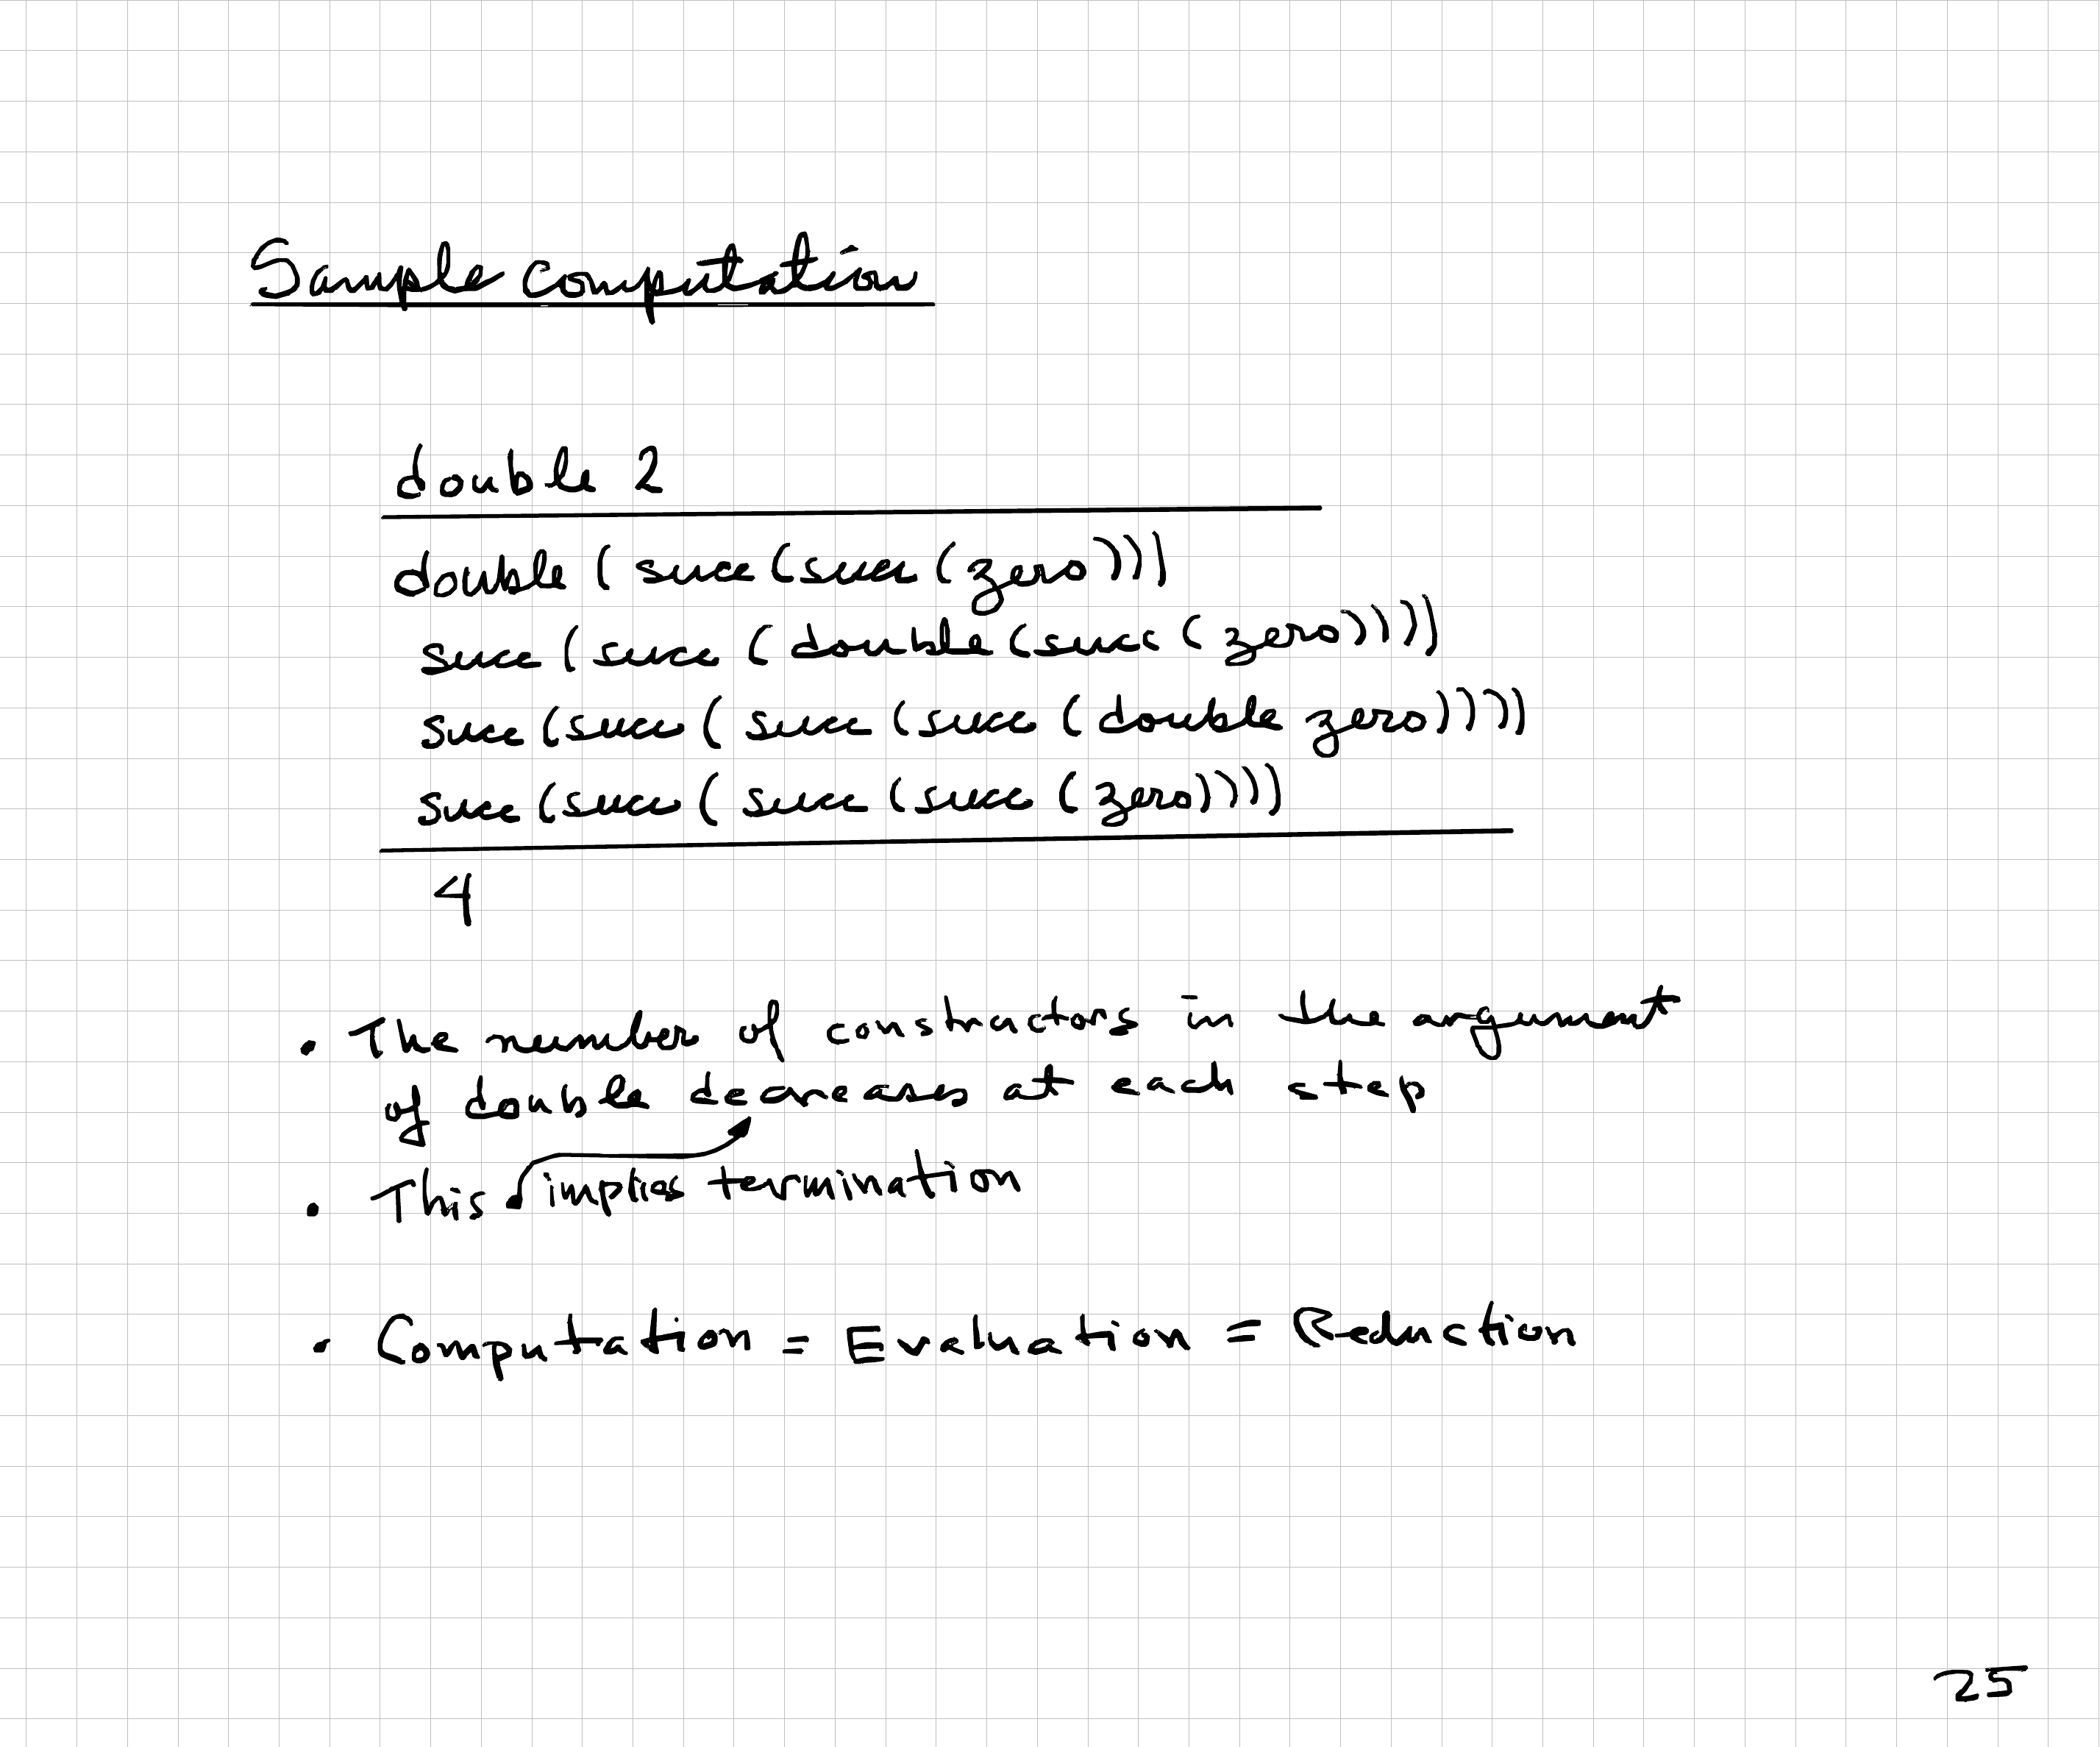 Sample computation
double 2
double (succ (succ (zero)))
succ (succ (double (succ (zero))))
succ (succ (succ (succ (double zero))))
succ (succ (succ (succ (zero))))
4
• The number of constructors in the argument
of double decreases at each step
• This implies termination
• Computation = Evaluation = Reduction
25